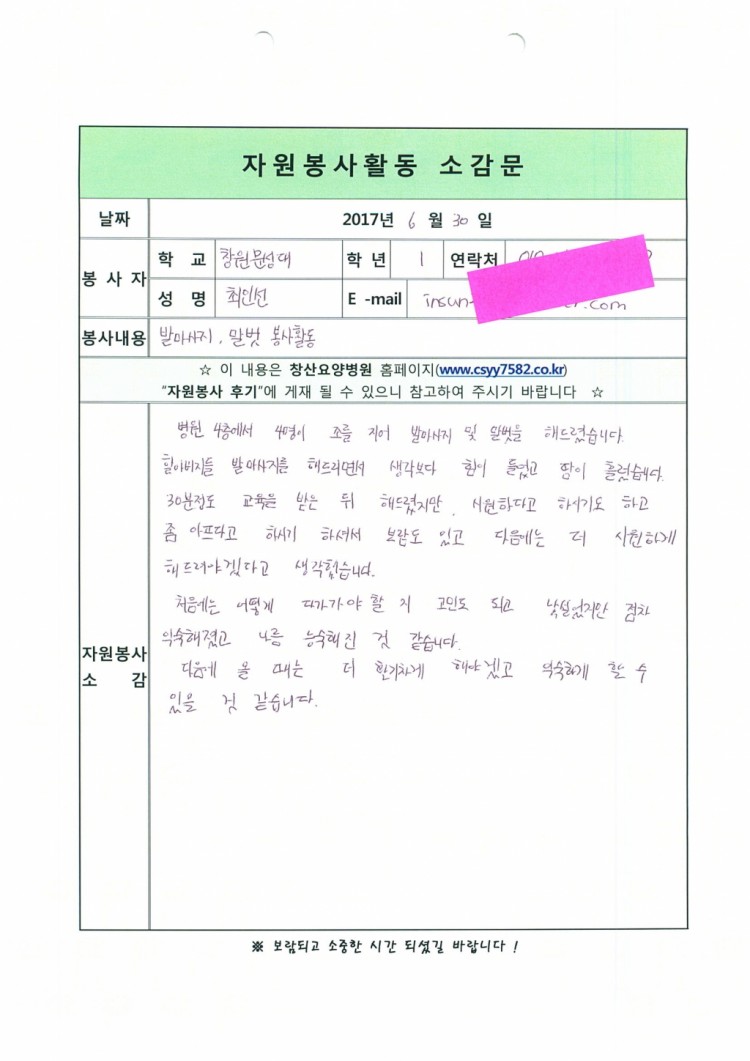 자원봉사활동 소감문
날짜 2017년 6 월 30 일
봉 사 자
학 교 창원문성대 학 년 1 연락처
성 명 최인선 E -mail insun .com
봉사내용 발마사지, 말벗 봉사활동
☆ 이 내용은 창산요양병원 홈페이지(www.csyy7582.co.kr)
"자원봉사 후기"에 게재 될 수 있으니 참고하여 주시기 바랍니다 ☆
자원봉사
소 감
병원 4층에서 4명이 조를 지어 발마사지 및 말벗을 해드렸습니다.
할아버지들 발마사지를 해드리면서 생각보다 힘이 들었고 땀이 흘렀습니다.
30분정도 교육을 받은 뒤 해드렸지만, 시원하다고 하시기도 하고
좀 아프다고 하시기 하셔서 보람도 있고 다음에는 더 시원하게
해드려야겠다고 생각했습니다.
처음에는 어떻게 다가가야 할 지 고민도 되고 낯설었지만 점차
익숙해졌고 나름 능숙해진 것 같습니다.
다음에 올 때는 더 활기차게 해야겠고 익숙하게 할 수
있을 것 같습니다.
※ 보람되고 소중한 시간 되셨길 바랍니다 !